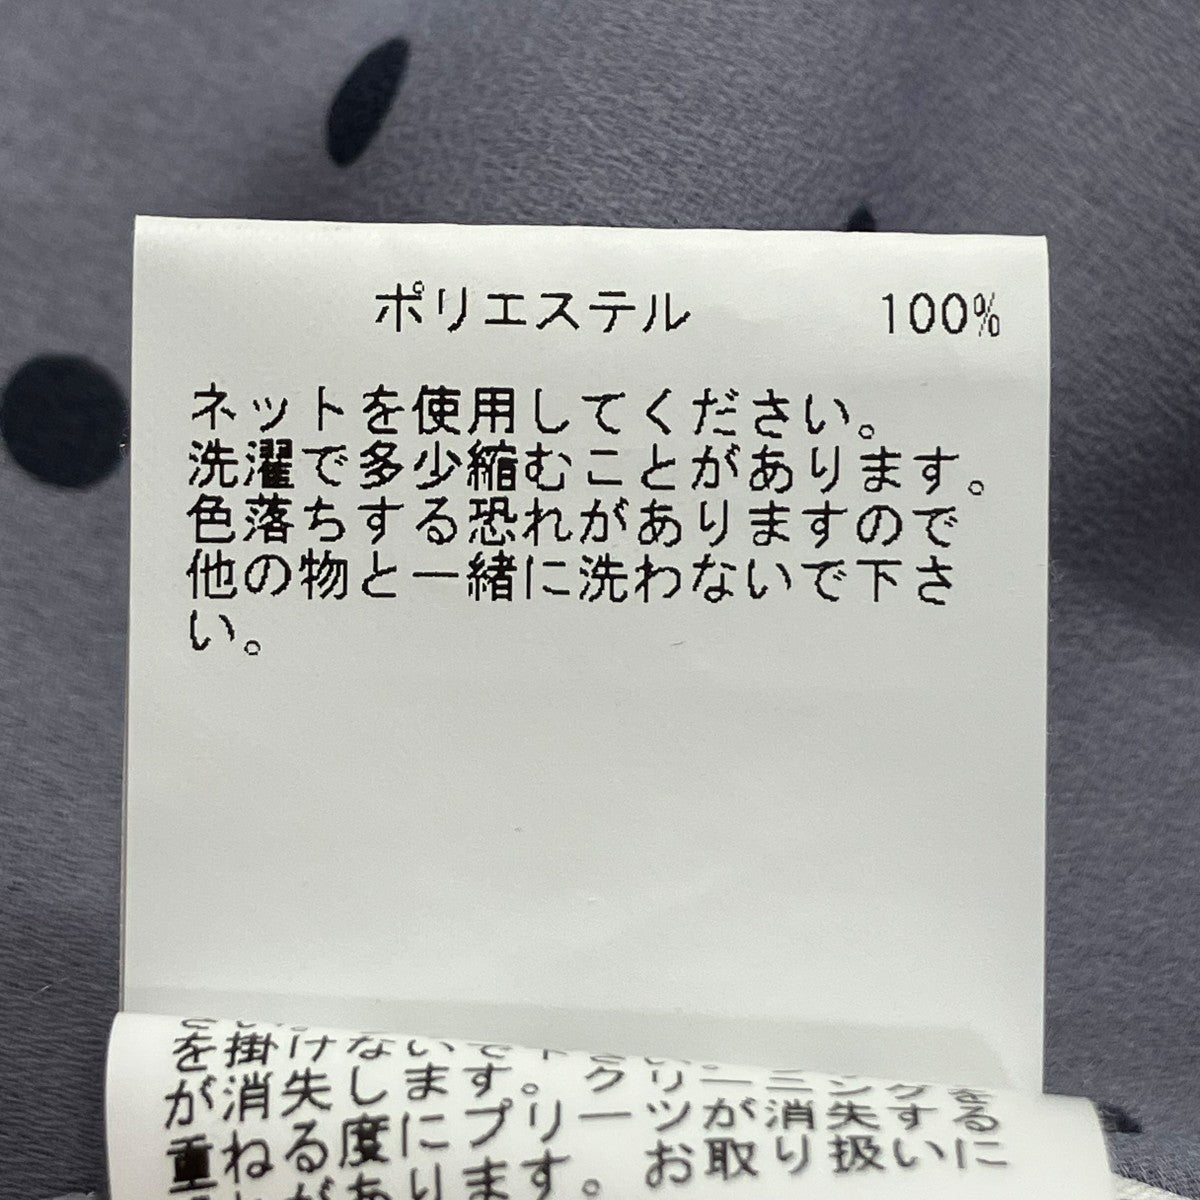 ポリエステル 100%
ネットを使用してください。
洗濯で多少縮むことがあります。
色落ちする恐れがありますので
他の物と一緒に洗わないで下さ
い。
を掛けないで下さい
が消失します。クリーニングを
重ねる度にプリーツが消失する
があります。お取り扱いに